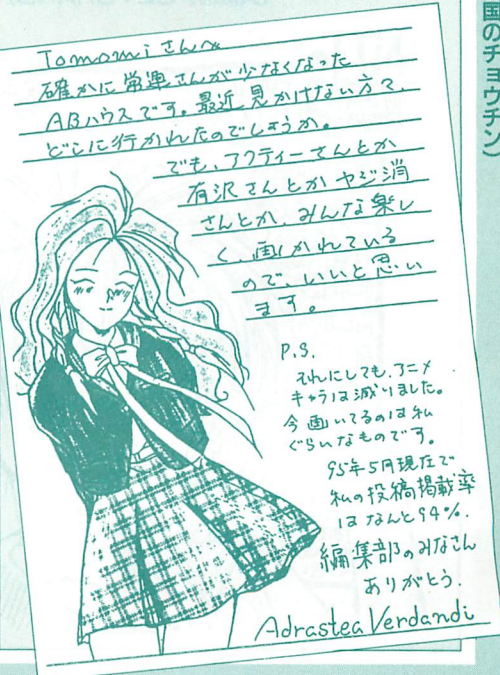 Tomomiさんへ
確かに常連さんが少なくなった
ABハウスです。最近見かけない方々、
どこに行かれたのでしょうか。
でも、アクティーさんとか
有沢さんとかヤジ消
さんとか、みんな楽し
く、画かれている
ので、いいと思い
ます。
P.S.
それにしても、アニメ
キャラは減りました。
今画いてるのは私
ぐらいなものです。
95年5月現在で
私の投稿掲載率
はなんと94%.
編集部のみなさん
ありがとう.
Adrastea Verdandi
国のチョウチン)